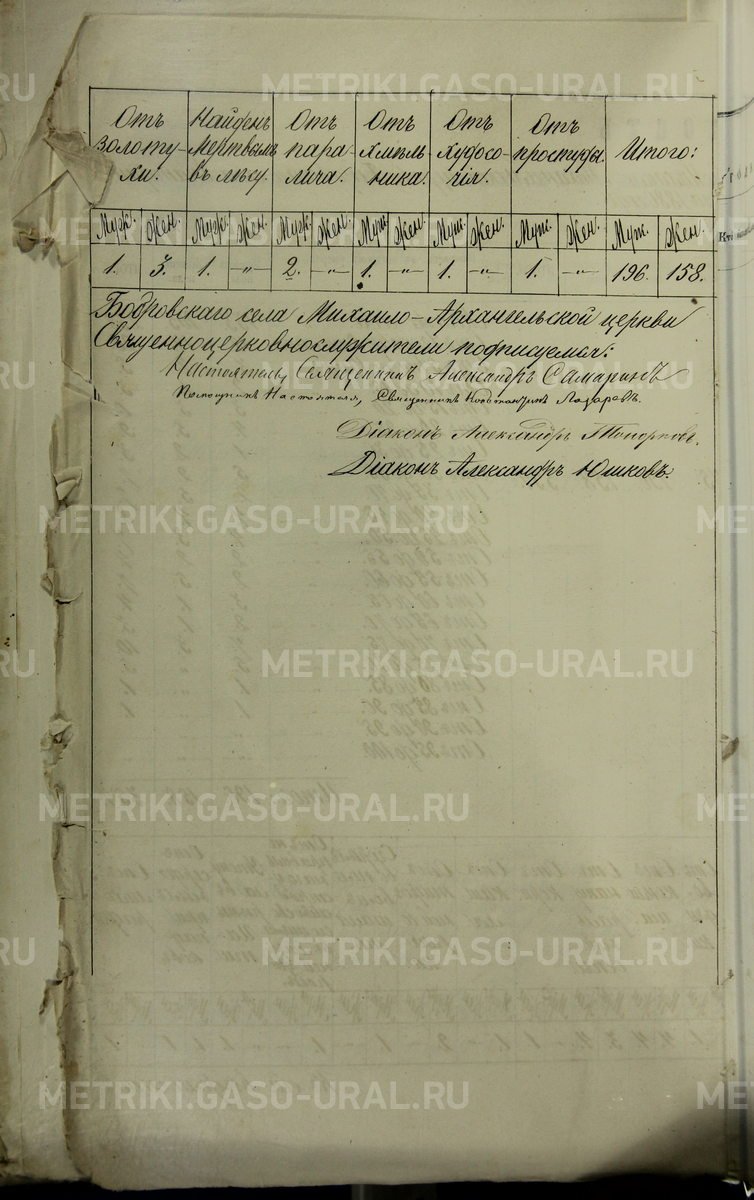 METRIKI.GASO-URAL.RU
Отъ золоту-хи. Найденъ мертвымъ въ лѣсу. Отъ пара-лича. Отъ хмѣль-ника. Отъ худосо-чія. Отъ простуды. Итого:
Муж. Жен. Муж. Жен. Муж. Жен. Муж. Жен. Муж. Жен. Муж. Жен. Муж. Жен.
1. 3. 1. -„- 2. -„- 1. -„- 1. -„- 1. -„- 196. 158.
Бобровскаго села Михаило-Архангельской церкви
Священноцерковнослужители подписуемся:
Настоятель, Священникъ Александръ Самаринъ
Помощникъ Настоятеля, Священникъ Лазаревъ.
Діаконъ Александръ Топорковъ.
Діаконъ Александръ Юшковъ.
METRIKI.GASO-URAL.RU
METRIKI.GASO-URAL.RU
METRIKI.GASO-URAL.RU
METRIKI.GASO-URAL.RU
METRIKI.GASO-URAL.RU
METRIKI.GASO-URAL.RU